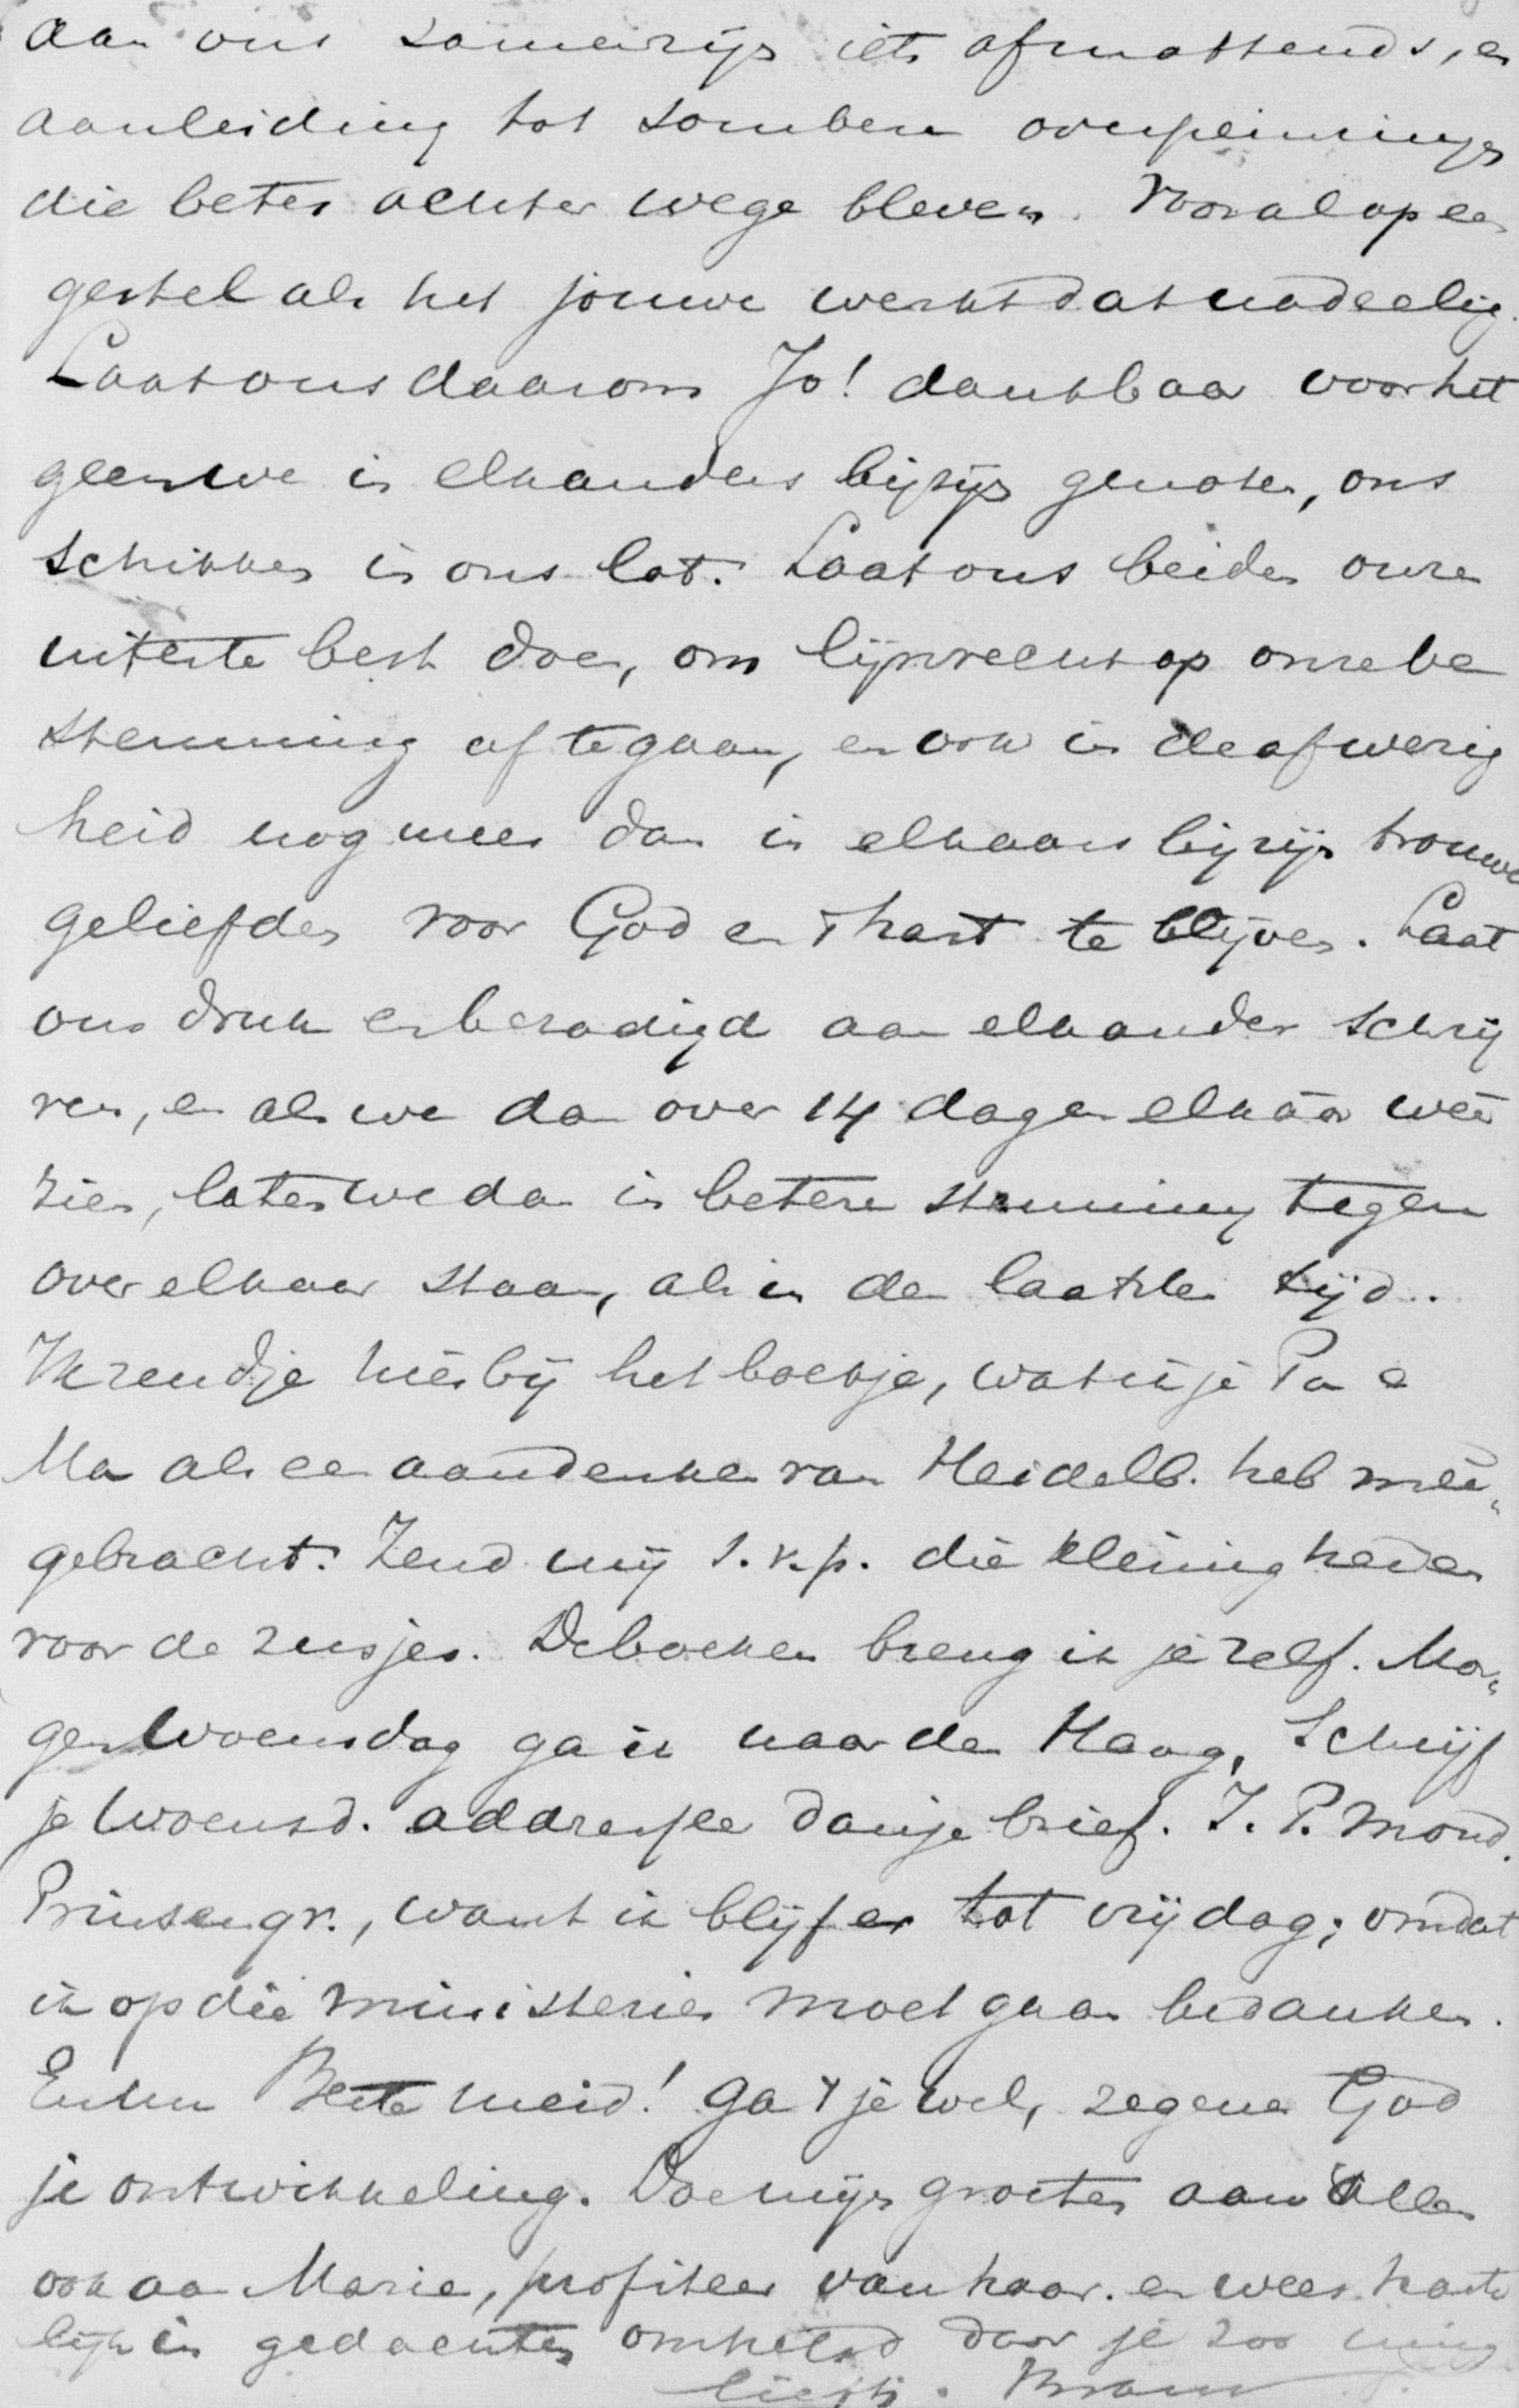 aan ons samenzijn iets afmattends, en
aanleiding tot sombere overpeinzingen
die beter achter wege bleven. Vooral op een
gestel als het jouwe werkt dat nadeelig.
Laat ons daarom Jo! dankbaar voor het
geen we in elkanders bijzijn genoten, ons
schikken in ons lot. Laat ons beiden onze
uiterste best doen, om lijnrecht op onze be
stemming af te gaan, en ook in de afwezig
heid nog meer dan in elkaars bijzijn trouwe
geliefden voor God en 't hart te blijven. Laat
ons druk en bezadigd aan elkander schrij
ven, en als we dan over 14 dagen elkaâr weêr
zien, laten we dan in betere stemming tegen
over elkaar staan, als in den laatsten tijd.
Ik zend je hierbij het boekje, wat ik je Pa en
Ma als een aandenken van Heidelb. heb meê„
gebracht. Zend mij s.v.p. die kleinigheden
voor de zusjes. De boeken breng ik je zelf. Mor„
gen Woensdag ga ik naar den Haag, Schrijf
je Woensd. addresseer dan je brief. I. P. Mond.
Prinsengr., want ik blijf er tot vrijdag; omdat
ik op die ministeries moet gaan bedanken.
En nu Beste meid! ga 't je wel, zegene God
je ontwikkeling. Doe mijn groeten aan allen
ook aan Marie, profiteer van haar. en wees harte
lijk in gedachten omhelsd door je zoo innig
liefh. Bram